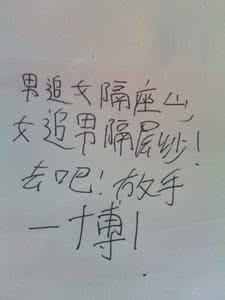 男追女隔座山,
女追男隔层纱!
去吧!放手
一博!